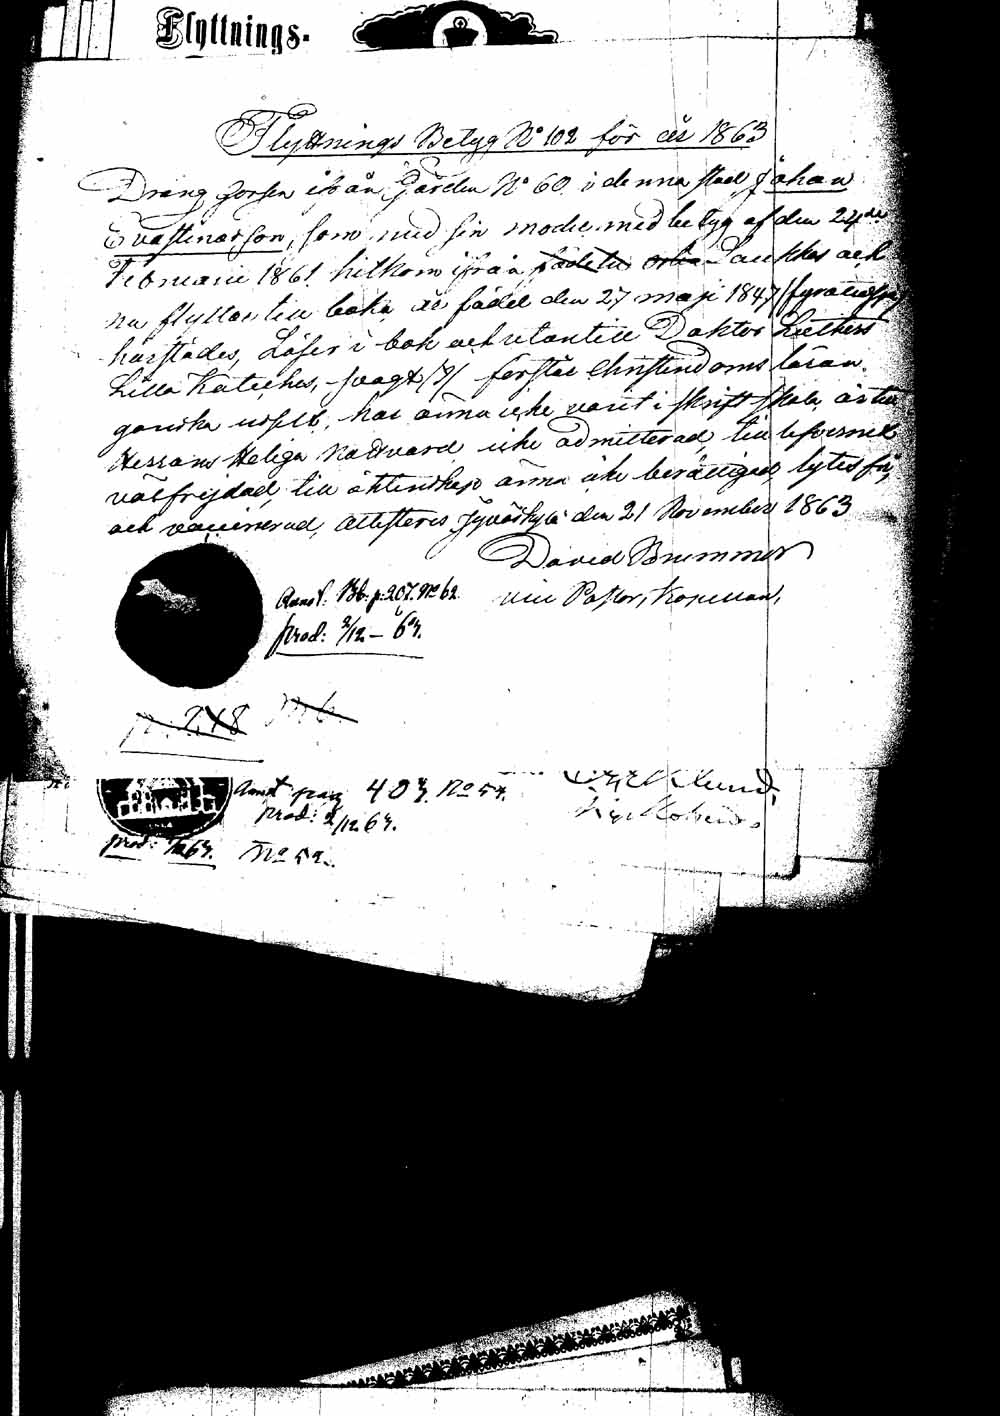 Flyttnings-
Flyttnings Betyg No 102 för år 1863
Dräng gossen ifrån Gården No 60 i denna stad Johan
Evastinarson, som med sin moder med betyg af den 24de
Februarii 1861 hitkom ifrån Laukkas och
nu flyttar till baka är född den 27 maji 1847
härstädes, Läser i bok och utantill Doktor Luthers
Lilla Katches, svagt förstår Christendoms läran
ganska uselt, har änna icke varit i skrift skola, är till
Herrans Heliga Nattvard icke admitterad, till lefvernet
välfrejdad, till äktenskap änna icke berättigad, lytes fri,
och vaccinerad, attesteras Jyväskylä den 21 November 1863
David Brummer
vice Pastor,
Annot. Bb. p. 207. No 62
prod: 2/12 - 63.
p: 248
Annot pag 403. No 54.
prod: 2/12 63.
prod: 63. No 52.